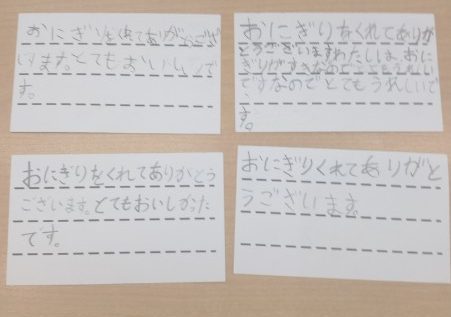 おにぎりを
ります。とてもおいしいで
す。
おにぎりをくれてありが
とうございますわたしは、おに
ぎりがすきなので
ですなのでとてもうれしいで
す。
おにぎりをくれてありがとう
ございます。とてもおいしかった
です。
おにぎりくれてありがと
うございます。